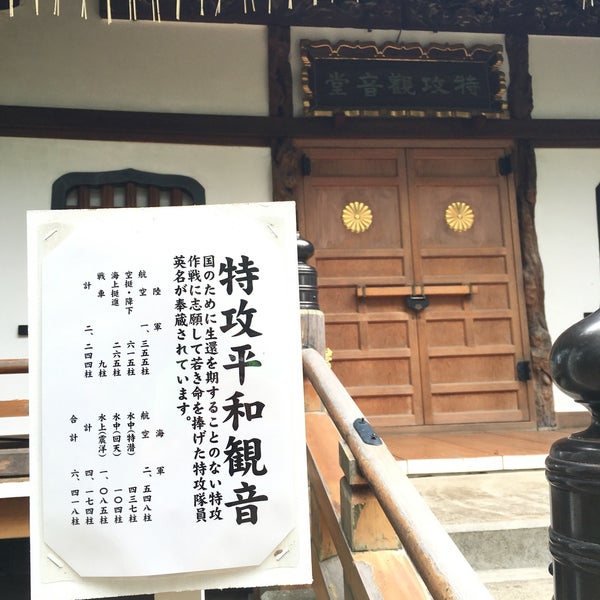 特攻観音堂
特攻平和観音
国のために生還を期することのない特攻
作戦に志願して若き命を捧げた特攻隊員
英名が奉蔵されています。
陸軍
航空 一、三五五柱
空挺・降下 六一五柱
海上挺進 二六五柱
戦車 九柱
計 二、二四四柱
海軍
航空 二、五四八柱
水中(特潜) 四三七柱
水中(回天) 一〇四柱
水上(震洋) 一、〇八五柱
計 四、一七四柱
合計 六、四一八柱